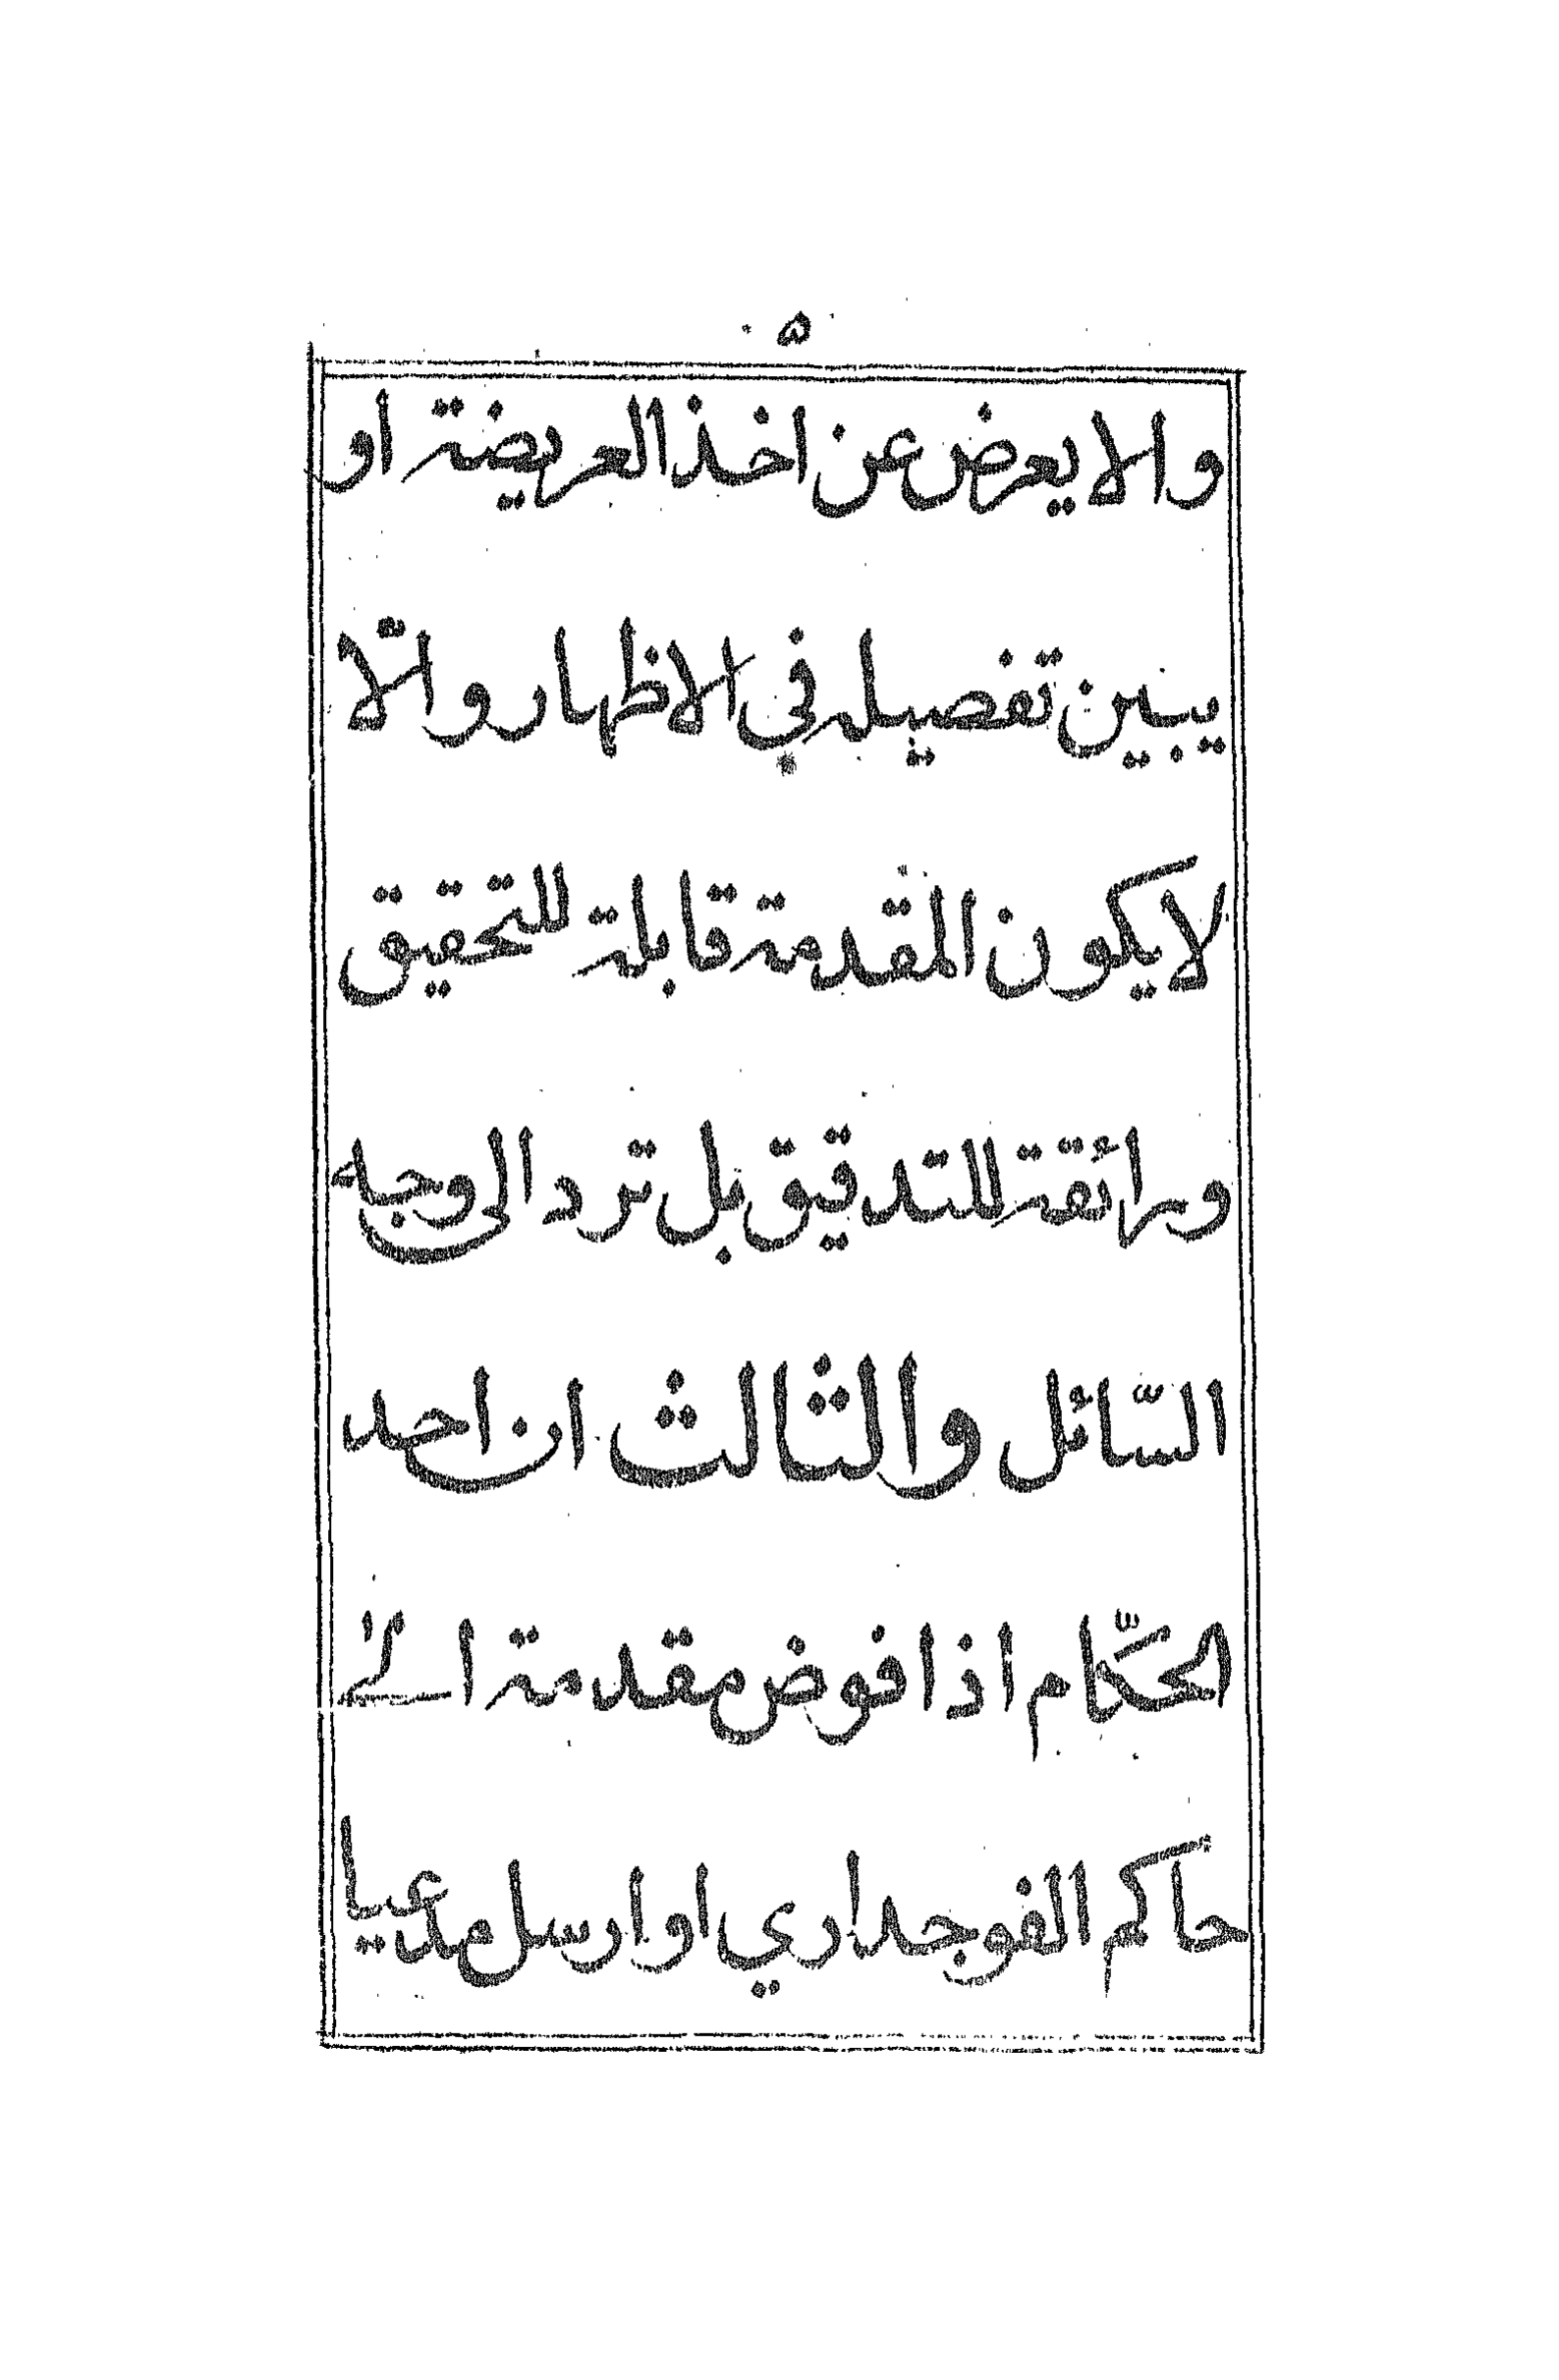 ۵
والا يعرض عن اخذ العريضة او
يبين تفصيله في الاظهار والّا
لا يكون المقدمة قابلة للتحقيق
ورائقة للتدقيق بل ترد الى وجه
السّائل والثالث ان احد
الحكّام اذا فوض مقدمة الى
حاكم الفوجداري او ارسل مدعيا